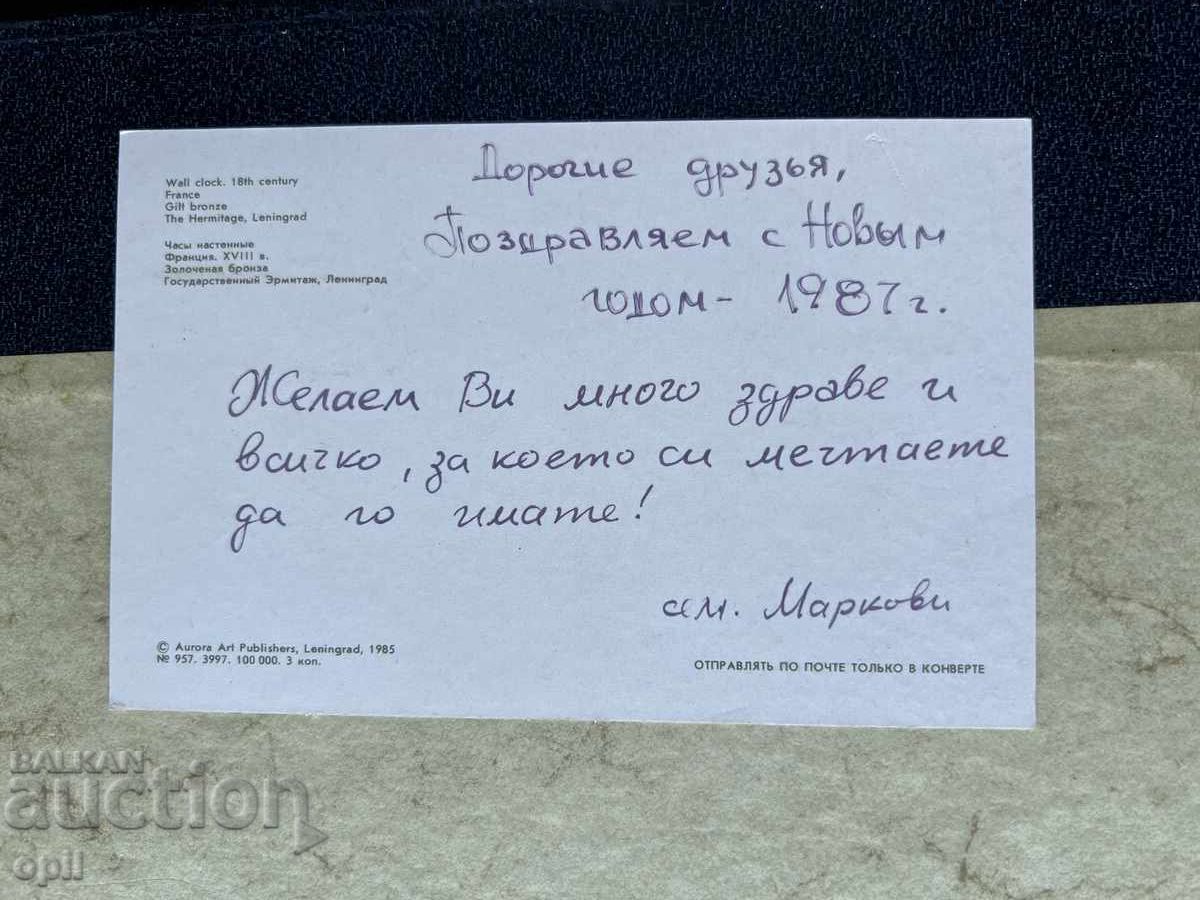 Wall clock. 18th century
France
Gilt bronze
The Hermitage, Leningrad
Часы настенные
Франция. XVIII в.
Золоченая бронза
Государственный Эрмитаж, Ленинград
Дорогие друзья,
Поздравляем с Новым
годом - 1987г.
Желаем Ви много здраве и
всичко, за което си мечтаете
да го имате!
сем. Маркови
© Aurora Art Publishers, Leningrad, 1985
№ 957. 3997. 100 000. 3 коп.
ОТПРАВЛЯТЬ ПО ПОЧТЕ ТОЛЬКО В КОНВЕРТЕ
BALKAN
auction
opil